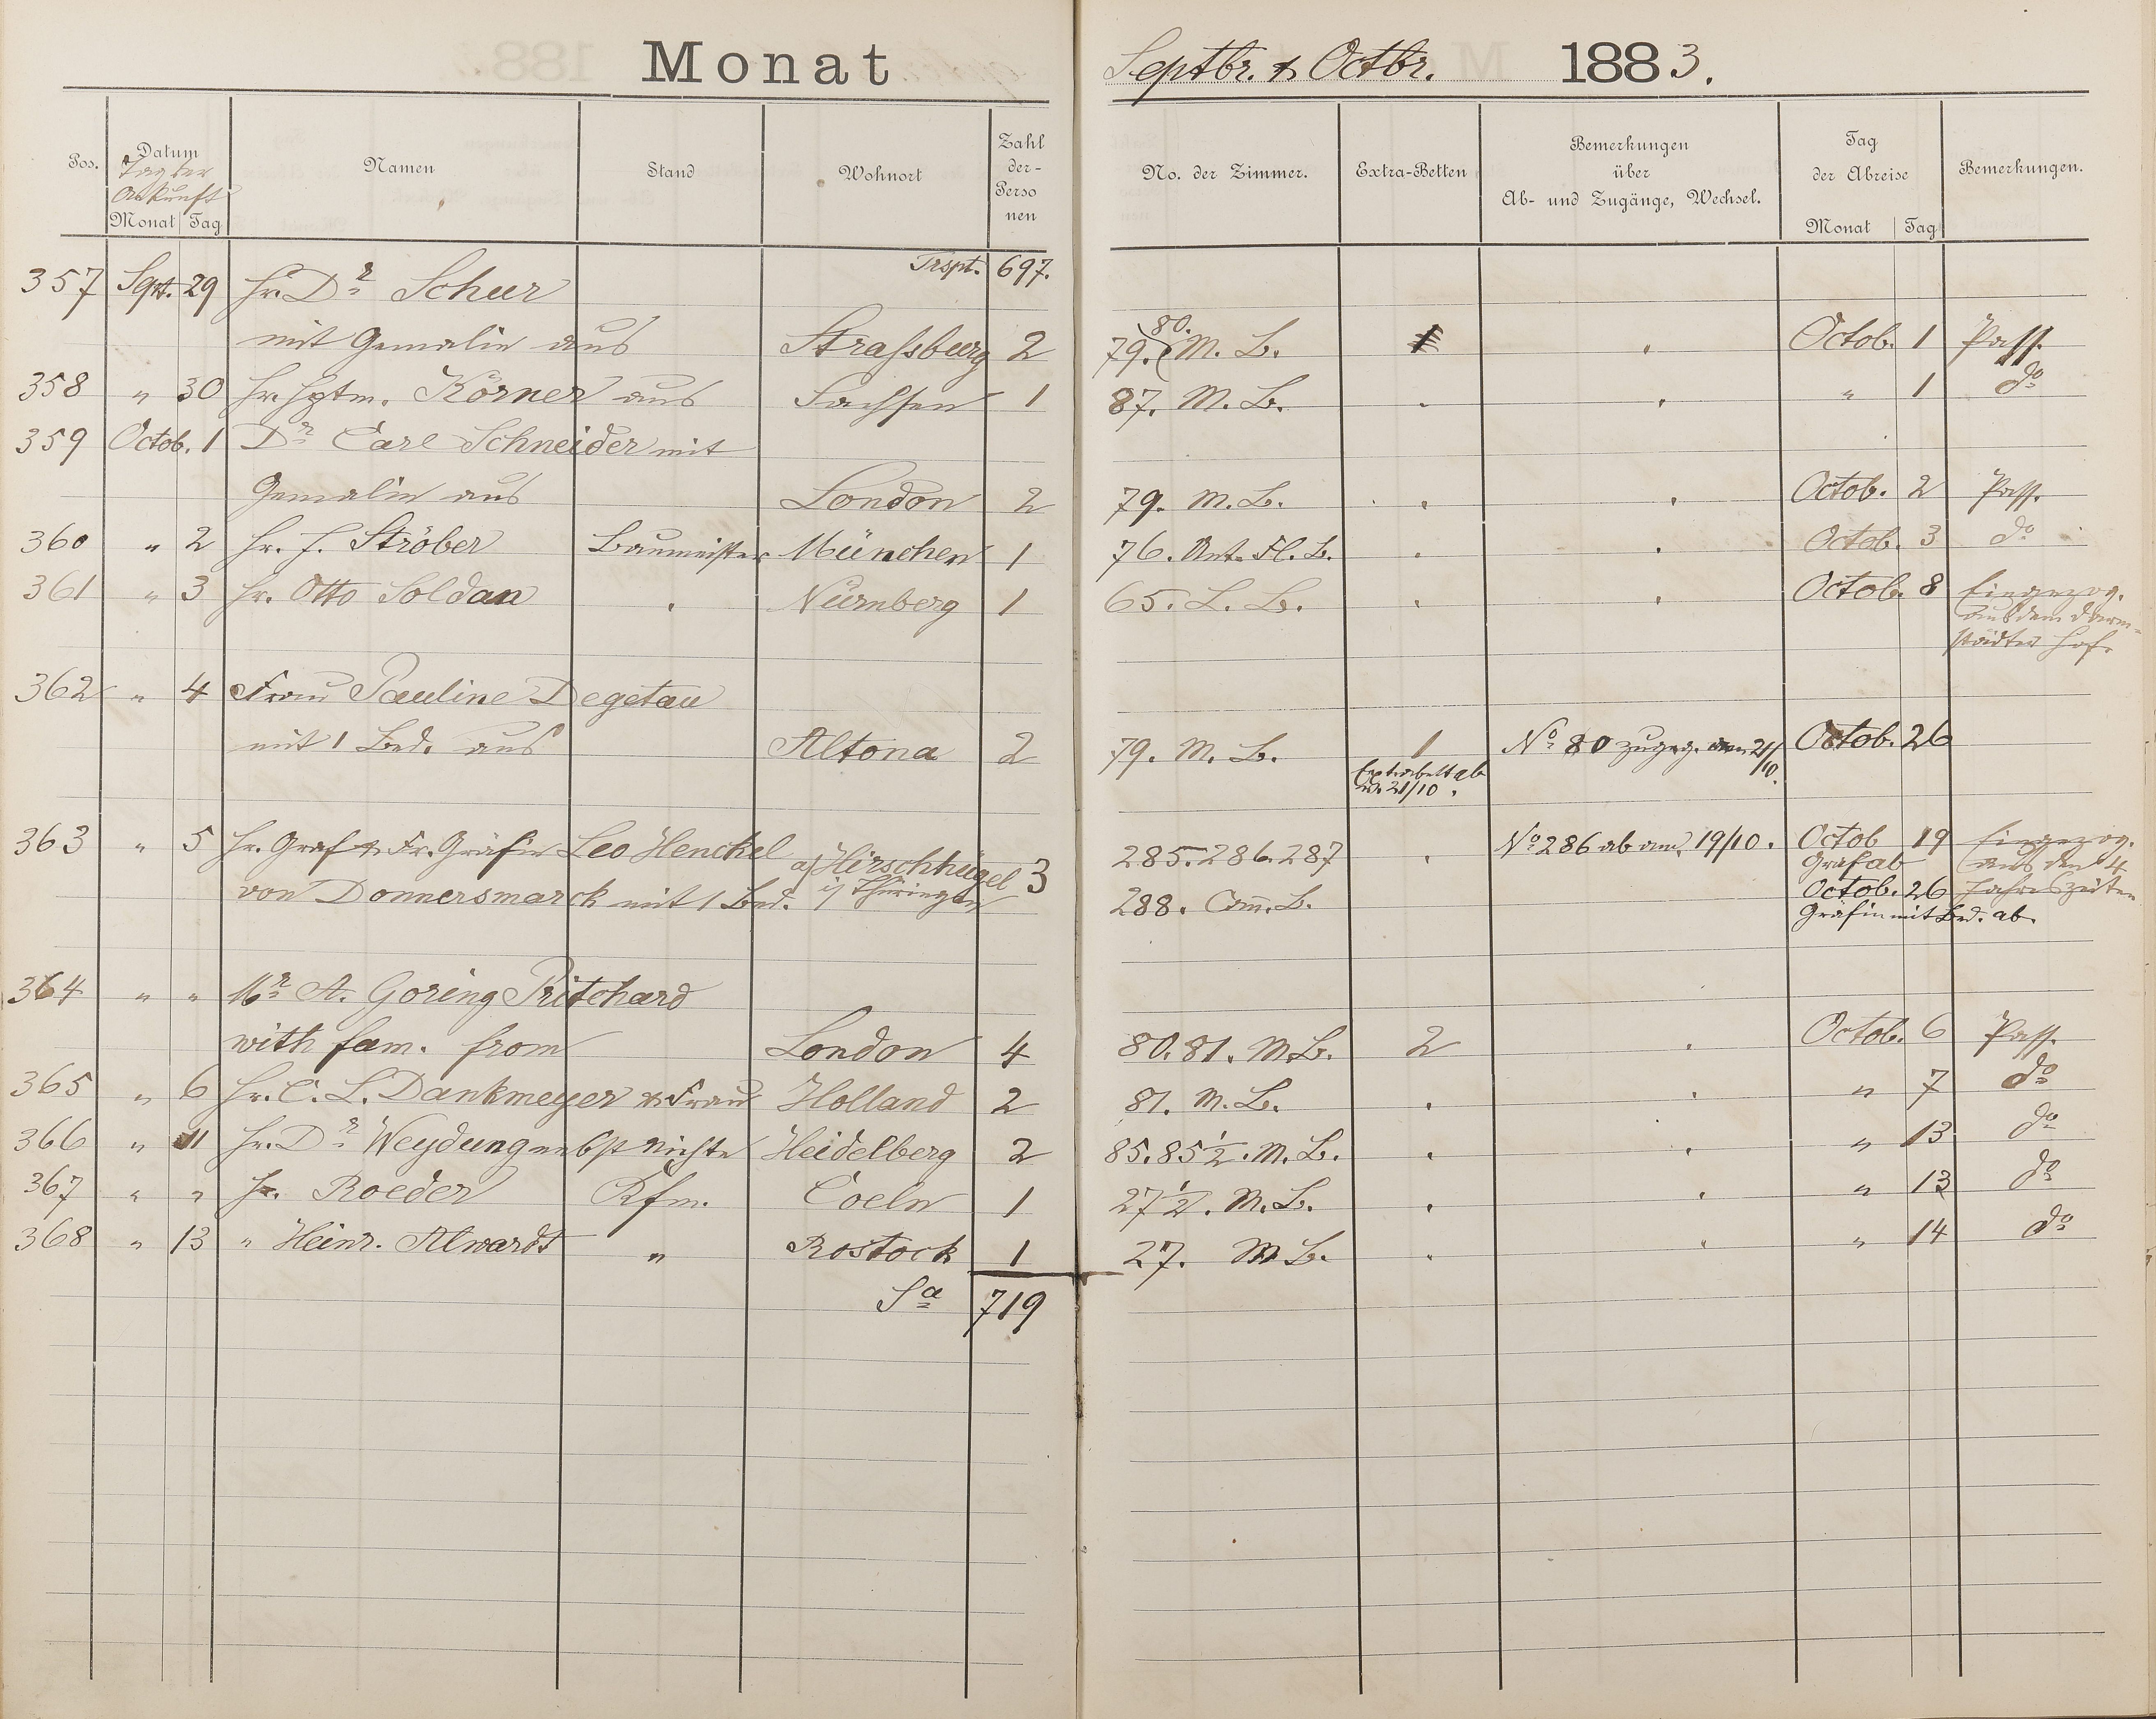 Monat Septbr. & Octbr. 1883.
Pos. Datum Namen Stand Wohnort Zahl No. der Zimmer. Extra-Betten Bemerkungen Tag Bemerkungen.
Tag der der- über der Abreise
Ankunft Perso Ab- und Zugänge, Wechsel.
Monat Tag nen Monat Tag
Trspt. 697.
357 Sept. 29 Hr. Dr Schur
mit Gemalin aus Straßsburg 2 79. 80. M. B. 1 " Octob. 1 Pass.
358 " 30 Hr. Hptm. Körner aus Sachsen 1 87. M. B. " " " 1 do
359 Octob. 1 Dr Carl Schneider mit
Gemalin aus London 2 79. M. B. " " Octob. 2 Pass.
360 " 2 Hr. J. Ströber Baumeister München 1 76. Unt. Fl. B. " " Octob. 3 do
361 " 3 Hr. Otto Soldan " Nürnberg 1 65. L. B. " " Octob. 8 Eingezog.
aus dem Darm-
städter Hof.
362 " 4 Frau Pauline Degetau
mit 1 Bed. aus Altona 2 79. M. B. 1 No 80 zugeg. am 21/10. Octob. 26
Extrabett ab
21/10.
363 " 5 Hr. Graf & Fr. Gräfin Leo Henckel a/ Hirschhügel 3 285. 286. 287 " No 286 ab am 19/10. Octob 19 Eingezog.
Graf ab aus den 4
von Donnersmarck mit 1 Bed. i/ Thüringen 288. Com. B. Octob. 26 Jahreszeiten
Gräfin mit Bed. ab.
364 " " Mr A. Goring Pritchard
with fam. from London 4 80. 81. M. B. 2 " Octob. 6 Pass.
365 " 6 Hr. C. L. Dankmeyer & Frau Holland 2 81. M. B. " " " 7 do
366 " 11 Hr. Dr Weydung nebst Nichte Heidelberg 2 85. 85 1/2. M. B. " " " 13 do
367 " " Hr. Roeder Kfm. Coeln 1 27 1/2. M. B. " " " 13 do
368 " 13 " Heinr. Alwardt " Rostock 1 27. M B. " " " 14 do
Sa 719